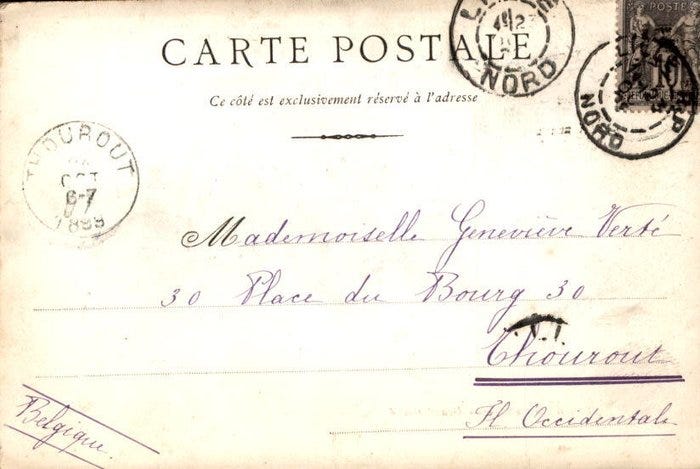 CARTE POSTALE
Ce côté est exclusivement réservé à l'adresse
NORD
POSTES
10
NORD
THOUROUT
OCT
6-7
1899
Mademoiselle Geneviève Verté
30 Place du Bourg 30
Thourout
Fl. Occidentale
Belgique